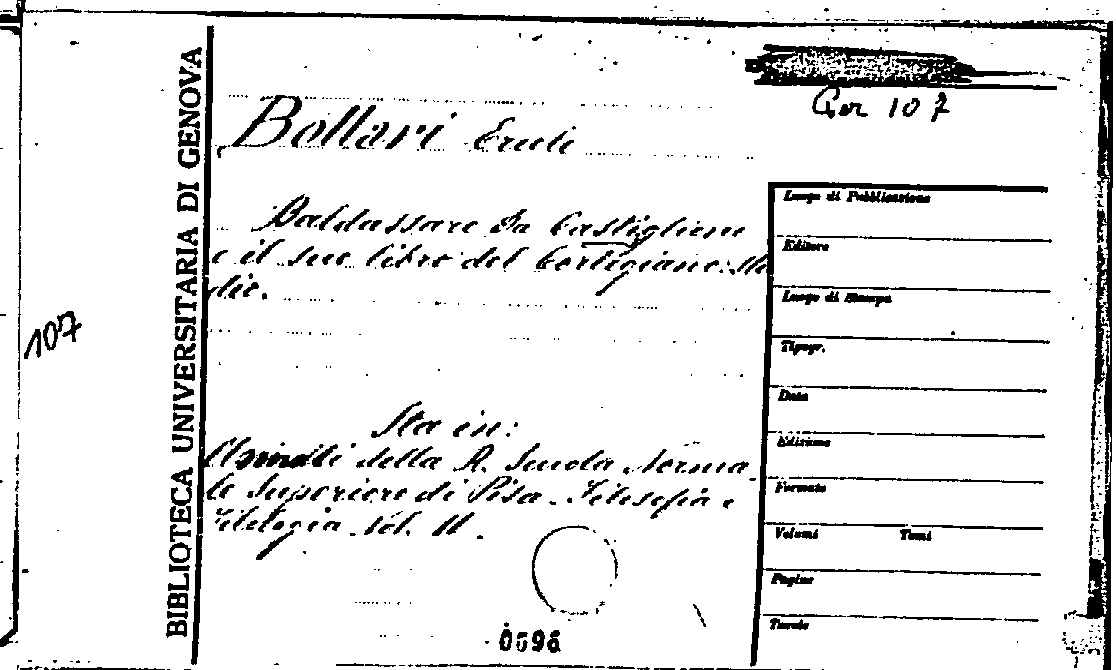 BIBLIOTECA UNIVERSITARIA DI GENOVA
107
Per 107
Bottari Ercole
Baldassare da Castiglione
e il suo libro del Cortigiano: Stu
dio.
Sta in:
Annali della R. Scuola Norma
le Superiore di Pisa. Filosofia e
Filologia Vol. II.
0696
Luogo di Pubblicazione
Editore
Luogo di Stampa
Tipogr.
Data
Edizione
Formato
Volumi Tomi
Pagine
Tavole